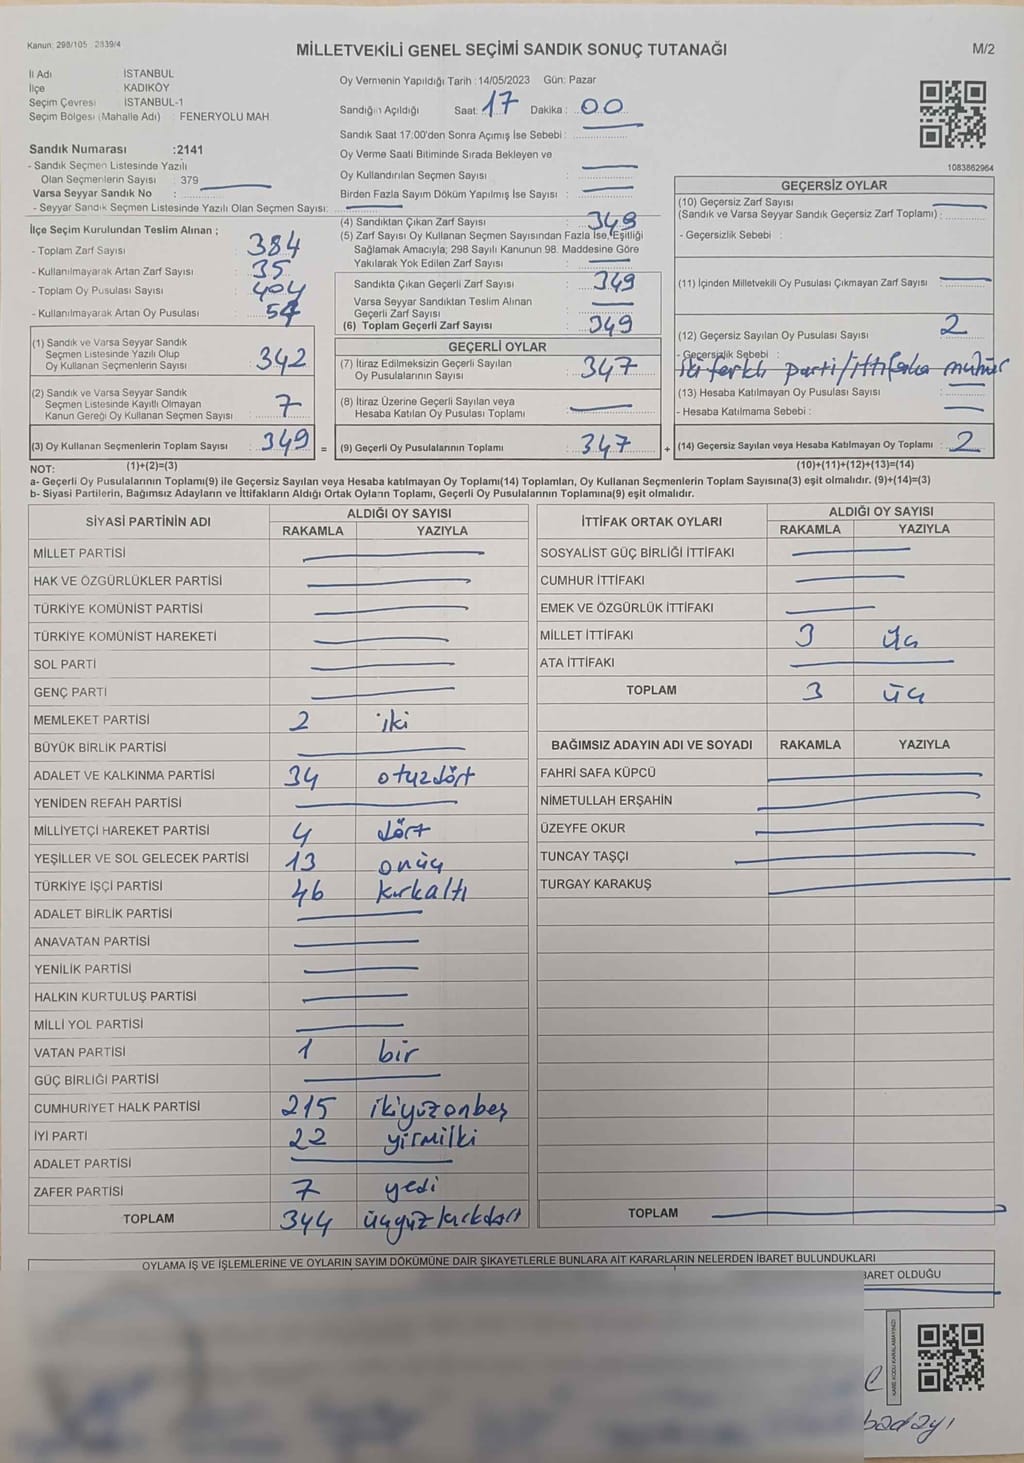 Kanun: 298/105 2839/4
MİLLETVEKİLİ GENEL SEÇİMİ SANDIK SONUÇ TUTANAĞI
M/2
İl Adı İSTANBUL
İlçe KADIKÖY
Seçim Çevresi İSTANBUL-1
Seçim Bölgesi (Mahalle Adı) : FENERYOLU MAH.
Sandık Numarası :2141
- Sandık Seçmen Listesinde Yazılı
Olan Seçmenlerin Sayısı : 379
Varsa Seyyar Sandık No :
- Seyyar Sandık Seçmen Listesinde Yazılı Olan Seçmen Sayısı:
Oy Vermenin Yapıldığı Tarih :14/05/2023 Gün: Pazar
Sandığın Açıldığı Saat: 17 Dakika : 00
Sandık Saat 17:00'den Sonra Açımış İse Sebebi :
Oy Verme Saati Bitiminde Sırada Bekleyen ve
Oy Kullandırılan Seçmen Sayısı :
Birden Fazla Sayım Döküm Yapılmış İse Sayısı :
1083862964
İlçe Seçim Kurulundan Teslim Alınan ;
- Toplam Zarf Sayısı : 384
- Kullanılmayarak Artan Zarf Sayısı : 35
- Toplam Oy Pusulası Sayısı : 404
- Kullanılmayarak Artan Oy Pusulası : 54
(1) Sandık ve Varsa Seyyar Sandık
Seçmen Listesinde Yazılı Olup
Oy Kullanan Seçmenlerin Sayısı : 342
(2) Sandık ve Varsa Seyyar Sandık
Seçmen Listesinde Kayıtlı Olmayan
Kanun Gereği Oy Kullanan Seçmen Sayısı : 7
(3) Oy Kullanan Seçmenlerin Toplam Sayısı : 349 =
(4) Sandıktan Çıkan Zarf Sayısı : 349
(5) Zarf Sayısı Oy Kullanan Seçmen Sayısından Fazla İse, Eşitliği
Sağlamak Amacıyla; 298 Sayılı Kanunun 98. Maddesine Göre
Yakılarak Yok Edilen Zarf Sayısı :
Sandıkta Çıkan Geçerli Zarf Sayısı : 349
Varsa Seyyar Sandıktan Teslim Alınan
Geçerli Zarf Sayısı :
(6) Toplam Geçerli Zarf Sayısı : 349
GEÇERLİ OYLAR
(7) İtiraz Edilmeksizin Geçerli Sayılan
Oy Pusulalarının Sayısı : 347
(8) İtiraz Üzerine Geçerli Sayılan veya
Hesaba Katılan Oy Pusulası Toplamı :
(9) Geçerli Oy Pusulalarının Toplamı : 347 +
GEÇERSİZ OYLAR
(10) Geçersiz Zarf Sayısı
(Sandık ve Varsa Seyyar Sandık Geçersiz Zarf Toplamı) :
- Geçersizlik Sebebi :
(11) İçinden Milletvekili Oy Pusulası Çıkmayan Zarf Sayısı :
(12) Geçersiz Sayılan Oy Pusulası Sayısı : 2
- Geçersizlik Sebebi :
iki farklı parti/ittifaka mühür
(13) Hesaba Katılmayan Oy Pusulası Sayısı :
- Hesaba Katılmama Sebebi :
(14) Geçersiz Sayılan veya Hesaba Katılmayan Oy Toplamı : 2
NOT: (1)+(2)=(3) (10)+(11)+(12)+(13)=(14)
a- Geçerli Oy Pusulalarının Toplamı(9) ile Geçersiz Sayılan veya Hesaba katılmayan Oy Toplamı(14) Toplamları, Oy Kullanan Seçmenlerin Toplam Sayısına(3) eşit olmalıdır. (9)+(14)=(3)
b- Siyasi Partilerin, Bağımsız Adayların ve İttifakların Aldığı Ortak Oyların Toplamı, Geçerli Oy Pusulalarının Toplamına(9) eşit olmalıdır.
SİYASİ PARTİNİN ADI ALDIĞI OY SAYISI
RAKAMLA YAZIYLA
MİLLET PARTİSİ
HAK VE ÖZGÜRLÜKLER PARTİSİ
TÜRKİYE KOMÜNİST PARTİSİ
TÜRKİYE KOMÜNİST HAREKETİ
SOL PARTİ
GENÇ PARTİ
MEMLEKET PARTİSİ 2 iki
BÜYÜK BİRLİK PARTİSİ
ADALET VE KALKINMA PARTİSİ 34 otuzdört
YENİDEN REFAH PARTİSİ
MİLLİYETÇİ HAREKET PARTİSİ 4 dört
YEŞİLLER VE SOL GELECEK PARTİSİ 13 onüç
TÜRKİYE İŞÇİ PARTİSİ 46 kırkaltı
ADALET BİRLİK PARTİSİ
ANAVATAN PARTİSİ
YENİLİK PARTİSİ
HALKIN KURTULUŞ PARTİSİ
MİLLİ YOL PARTİSİ
VATAN PARTİSİ 1 bir
GÜÇ BİRLİĞİ PARTİSİ
CUMHURİYET HALK PARTİSİ 215 ikiyüzonbeş
İYİ PARTİ 22 yirmiiki
ADALET PARTİSİ
ZAFER PARTİSİ 7 yedi
TOPLAM 344 üçyüzkırkdört
İTTİFAK ORTAK OYLARI ALDIĞI OY SAYISI
RAKAMLA YAZIYLA
SOSYALİST GÜÇ BİRLİĞİ İTTİFAKI
CUMHUR İTTİFAKI
EMEK VE ÖZGÜRLÜK İTTİFAKI
MİLLET İTTİFAKI 3 üç
ATA İTTİFAKI
TOPLAM 3 üç
BAĞIMSIZ ADAYIN ADI VE SOYADI RAKAMLA YAZIYLA
FAHRİ SAFA KÜPCÜ
NİMETULLAH ERŞAHİN
ÜZEYFE OKUR
TUNCAY TAŞÇI
TURGAY KARAKUŞ
TOPLAM
OYLAMA İŞ VE İŞLEMLERİNE VE OYLARIN SAYIM DÖKÜMÜNE DAİR ŞİKAYETLERLE BUNLARA AİT KARARLARIN NELERDEN İBARET BULUNDUKLARI
BARET OLDUĞU
KARE KODU KARALAMAYINIZ!